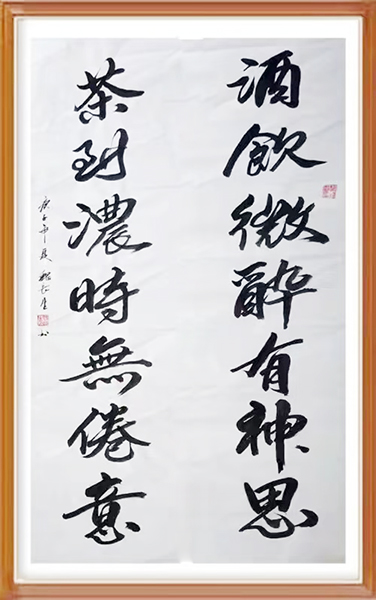 酒飲微醉有神思
茶到濃時無倦意
庚子年夏